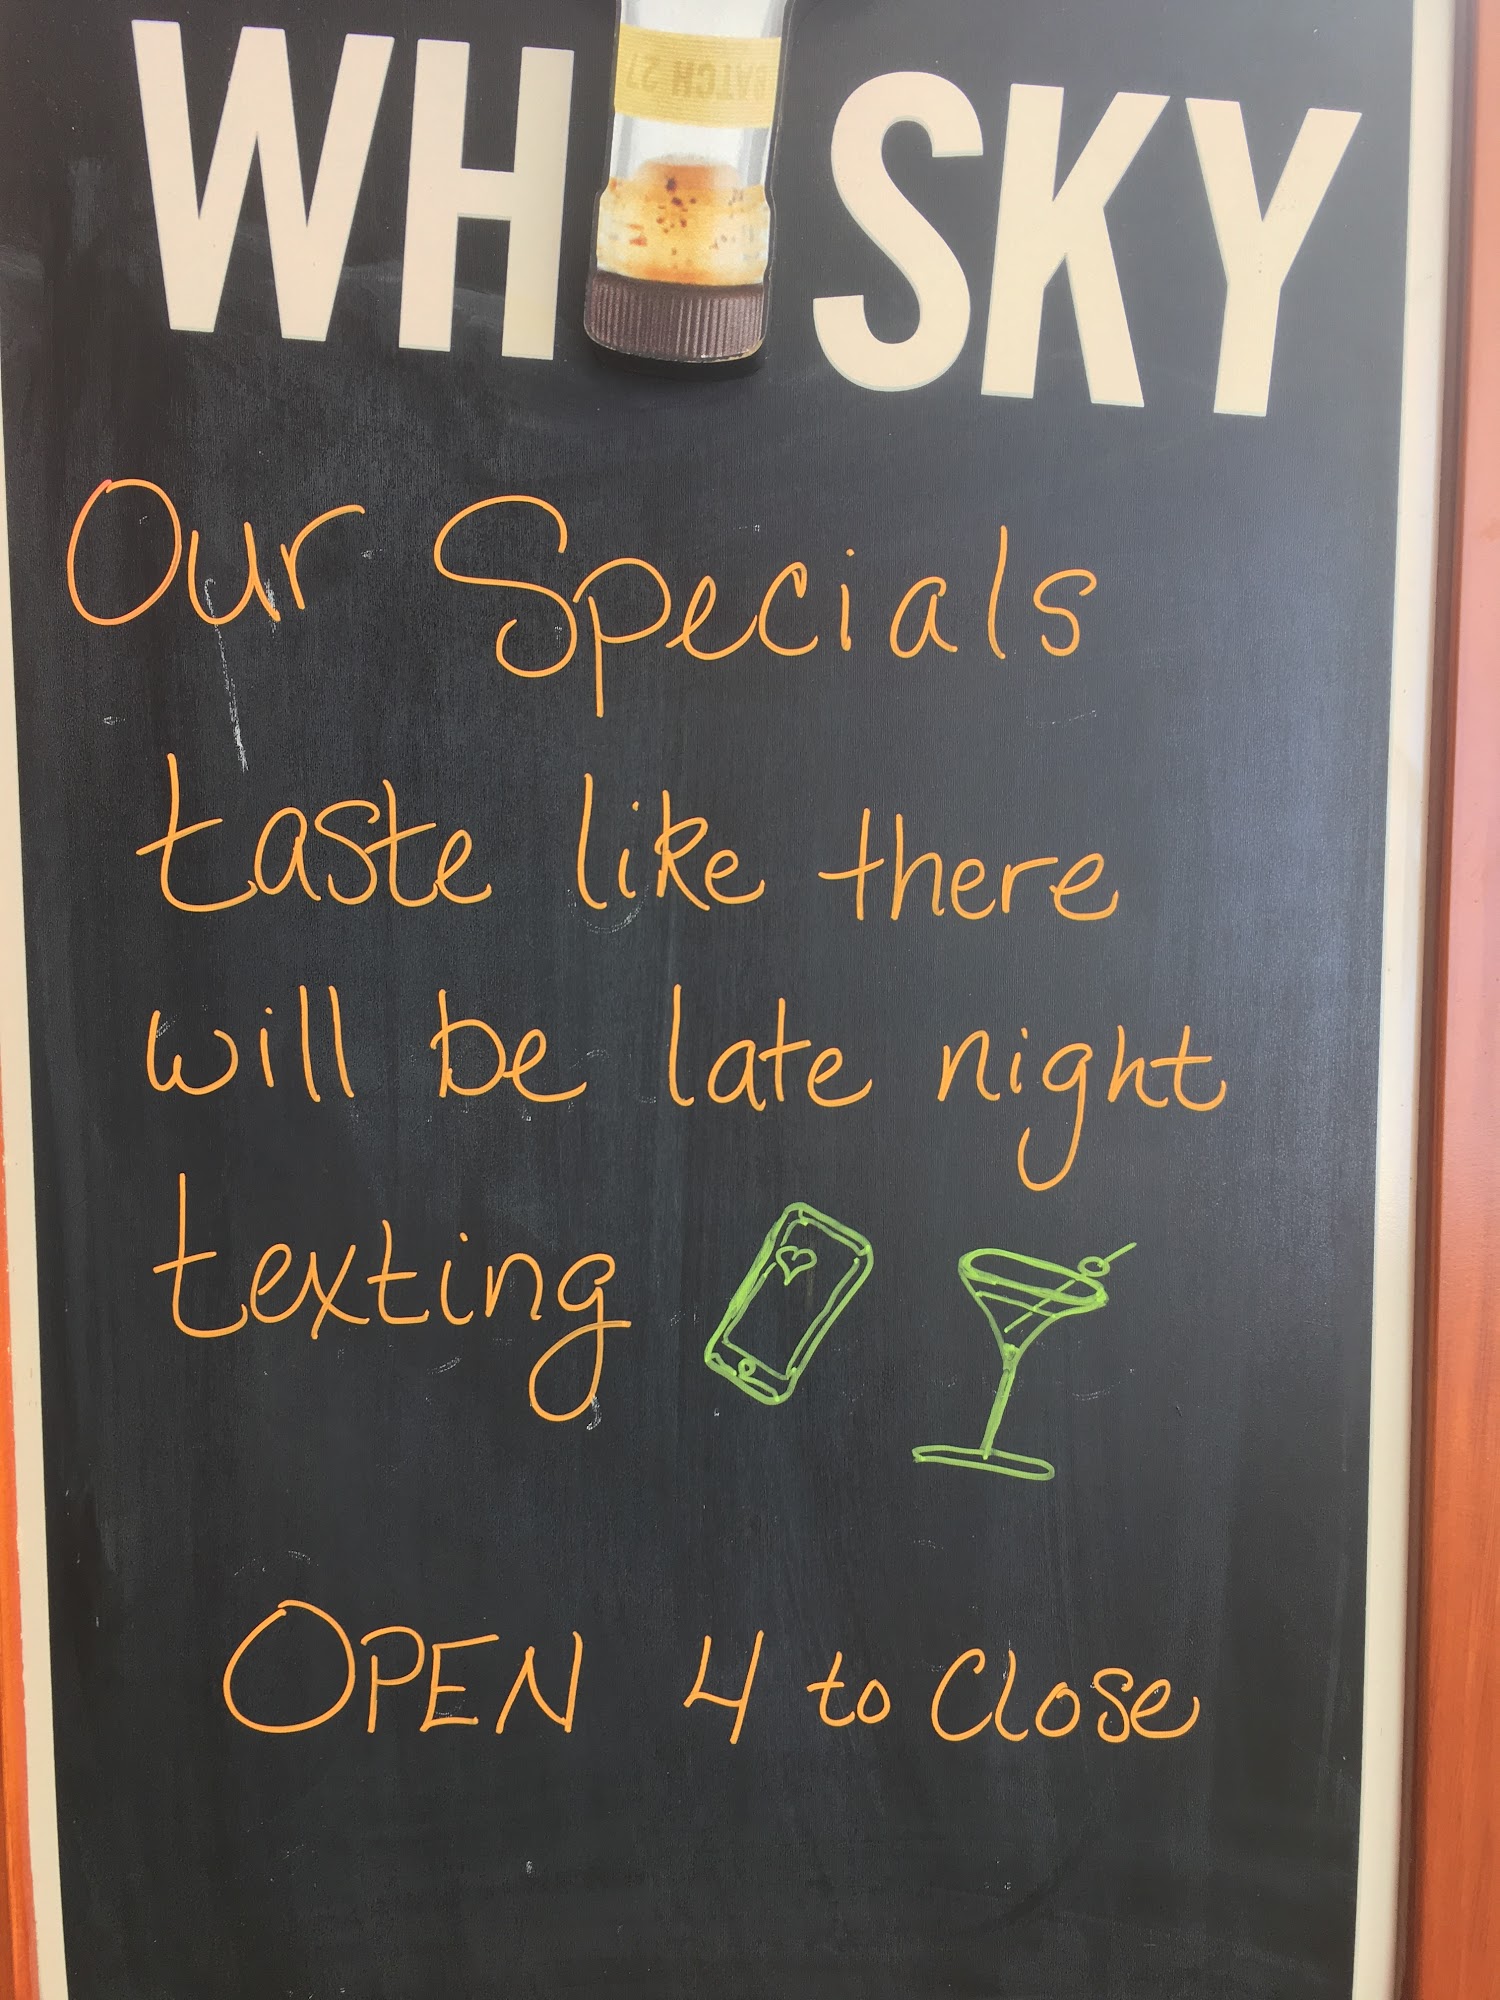 WHISKY
BATCH 27
Our Specials
taste like there
will be late night
texting
OPEN 4 to Close